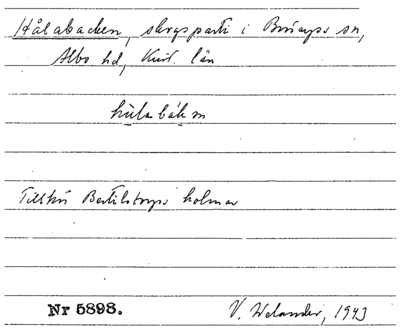 Hålabacken, skogsparti i Brösarps sn,
Albo hd, Krist. län
hůlabákm
Tillhör Bertilstorps holmar
Nr 5898. V. Welander, 1943